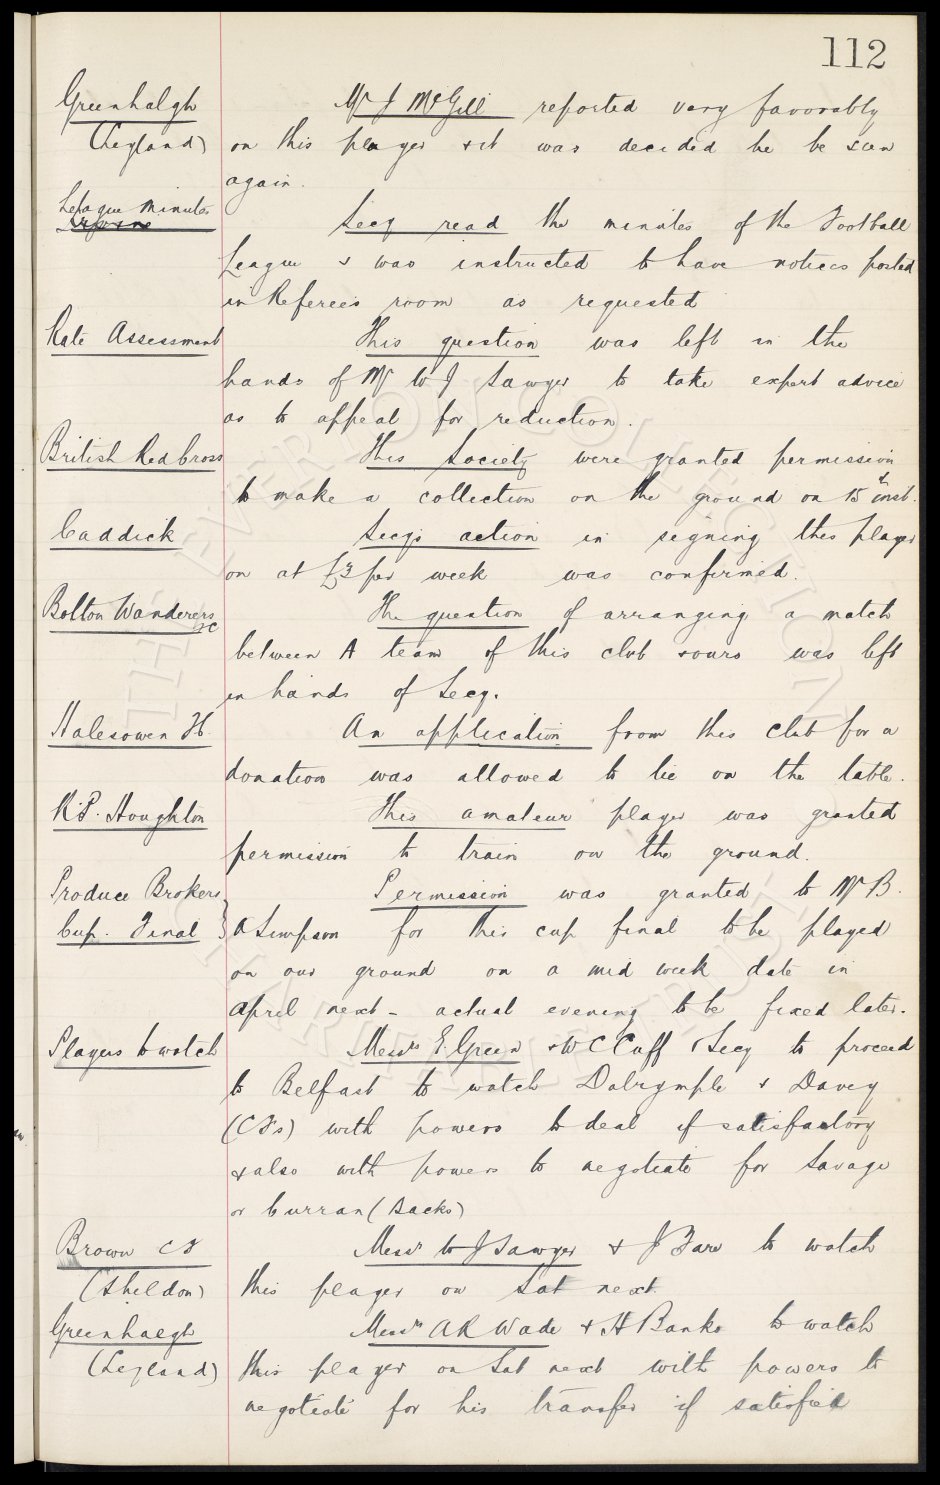 112
Greenhalgh Mr J McGill reported very favorably
(Leyland) on this player & it was decided he be seen
again.
League Minutes
Secy read the minutes of the Football
League & was instructed to have notices posted
in Referees room as requested
Rate Assessment This question was left in the
hands of Mr W J Sawyer to take expert advice
as to appeal for reduction.
British Red Cross This Society were granted permission
to make a collection on the ground on 15th inst.
Caddick Secys action in signing this player
on at £3 per week was confirmed.
Bolton Wanderers FC The question of arranging a match
between A team of this club & ours was left
in hands of Secy.
Halesowen H. An application from this club for a
donation was allowed to lie on the table.
R.P. Houghton This amateur player was granted
permission to train on the ground.
Produce Brokers Permission was granted to Mr B.
Cup. Final A Simpson for this cup final to be played
on our ground on a mid week date in
April next - actual evening to be fixed later.
Players to watch Messrs E. Green & W C Cuff & Secy to proceed
to Belfast to watch Dalrymple & Davey
(CFs) with powers to deal if satisfactory
& also with powers to negotiate for Savage
or Curran (Backs)
Brown CF Messrs W J Sawyer & J Fare to watch
(Sheldon) this player on Sat next.
Greenhalgh Messrs A R Wade & H Banks to watch
(Leyland) this player on Sat next with powers to
negotiate for his transfer if satisfied
THE EVERTON COLLECTION
CHARITABLE TRUST